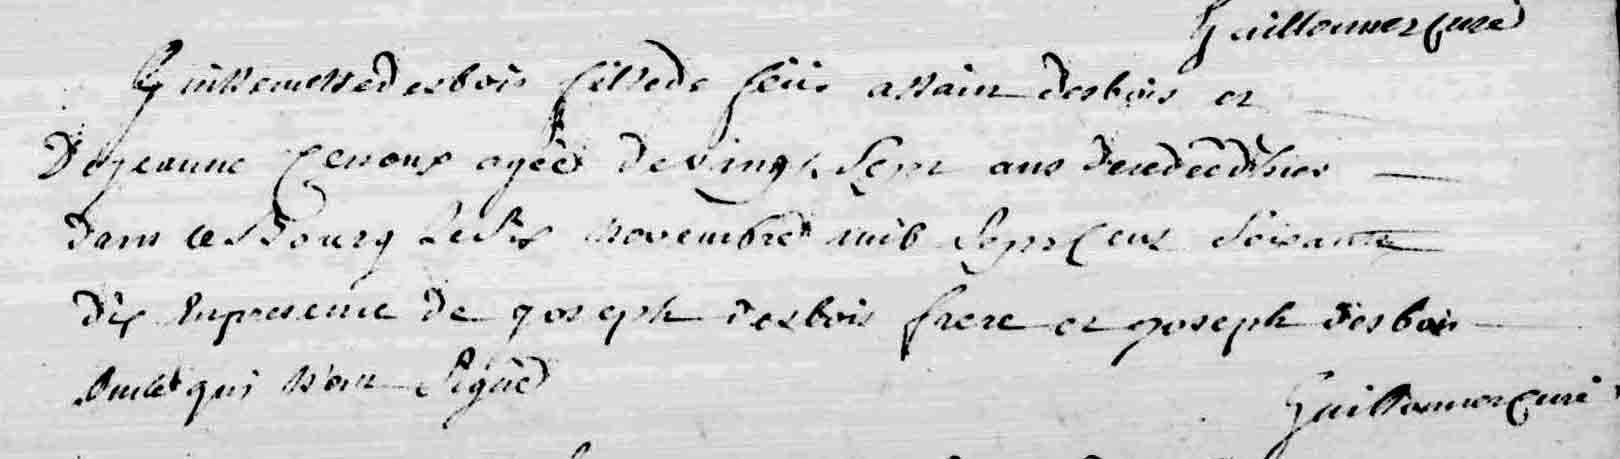 Guillonner Curé
Guillemette desbois fille de feüe allain desbois et
De jeanne Genoux ageé de vingt Sept ans decedeé hier
dans ce Bourg Le Six novembre mil Sept Cent Soixante
dix En presence de joseph desbois frere et joseph desbois
oncle qui n'ont Signé
Guillonner Curé